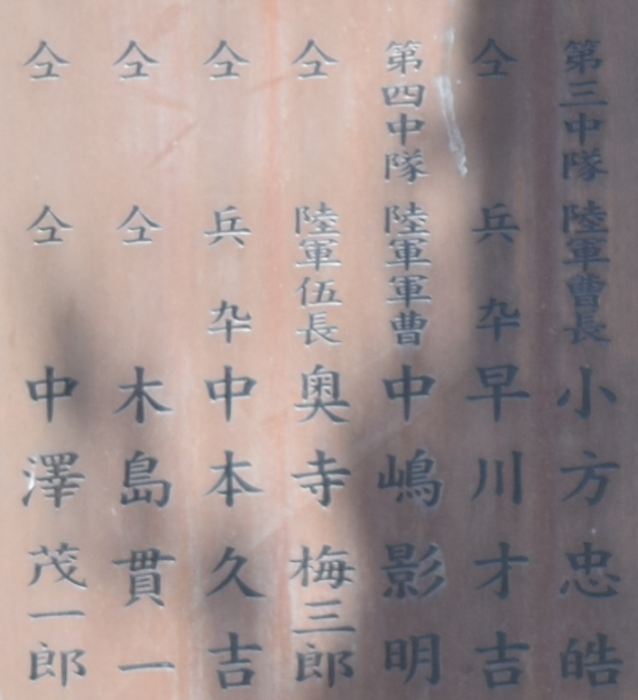 第三中隊 陸軍曹長 小方忠皓
仝 兵卆 早川才吉
第四中隊 陸軍軍曹 中嶋影明
仝 陸軍伍長 奥寺梅三郎
仝 兵卆 中本久吉
仝 仝 木島貫一
仝 仝 中澤茂一郎